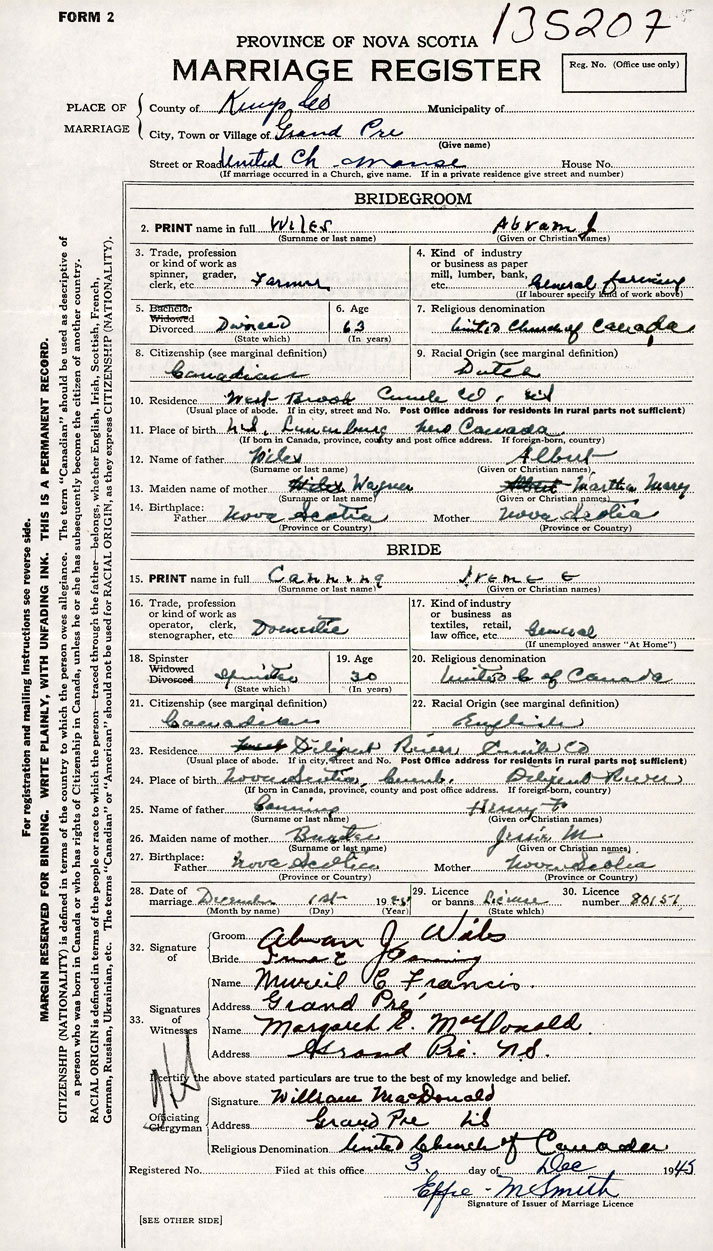 FORM 2
135207
PROVINCE OF NOVA SCOTIA
MARRIAGE REGISTER
Reg. No. (Office use only)
PLACE OF MARRIAGE
County of Kings Co Municipality of
City, Town or Village of Grand Pre
(Give name)
Street or Road United Ch Manse House No.
(If marriage occurred in a Church, give name. If in a private residence give street and number)
BRIDEGROOM
2. PRINT name in full Wiles Abram J
(Surname or last name) (Given or Christian names)
3. Trade, profession or kind of work as spinner, grader, clerk, etc. Farmer
4. Kind of industry or business as paper mill, lumber, bank, etc. General farming
(If labourer specify kind of work above)
5. Bachelor Widowed Divorced Divorced
(State which)
6. Age 63
(In years)
7. Religious denomination
United Church of Canada
8. Citizenship (see marginal definition)
Canadian
9. Racial Origin (see marginal definition)
Dutch
10. Residence West Brook Co,
(Usual place of abode. If in city, street and No. Post Office address for residents in rural parts not sufficient)
11. Place of birth N.S. Lunenburg Canada
(If born in Canada, province, county and post office address. If foreign-born, country)
12. Name of father Wiles Albert
(Surname or last name) (Given or Christian names)
13. Maiden name of mother Wiles Wagner Albert Martha Mary
(Surname or last name) (Given or Christian names)
14. Birthplace: Father Nova Scotia Mother Nova Scotia
(Province or Country) (Province or Country)
BRIDE
15. PRINT name in full Canning Irene E
(Surname or last name) (Given or Christian names)
16. Trade, profession or kind of work as operator, clerk, stenographer, etc. Domestic
17. Kind of industry or business as textiles, retail, law office, etc. General
(If unemployed answer "At Home")
18. Spinster Widowed Divorced Spinster
(State which)
19. Age 30
(In years)
20. Religious denomination
United C of Canada
21. Citizenship (see marginal definition)
Canadian
22. Racial Origin (see marginal definition)
English
23. Residence Diligent River Co
(Usual place of abode. If in city, street and No. Post Office address for residents in rural parts not sufficient)
24. Place of birth Nova Scotia, Cumb. Diligent River
(If born in Canada, province, county and post office address. If foreign-born, country)
25. Name of father Canning Henry
(Surname or last name) (Given or Christian names)
26. Maiden name of mother Jessie M
(Surname or last name) (Given or Christian names)
27. Birthplace: Father Nova Scotia Mother Nova Scotia
(Province or Country) (Province or Country)
28. Date of marriage December 1st 1945
(Month by name) (Day) (Year)
29. Licence or banns License
(State which)
30. Licence number 80151
32. Signature of Groom Abram J Wiles
Bride E Canning
33. Signatures of Witnesses
Name C Francis
Address Grand Pré
Name Margaret E. MacDonald
Address Grand Pré. N.S.
I certify the above stated particulars are true to the best of my knowledge and belief.
Officiating Clergyman
Signature William MacDonald
Address Grand Pre NS
Religious Denomination United Church of Canada
Registered No. Filed at this office 3 day of Dec 1945
Effie M Smith
Signature of Issuer of Marriage Licence
[SEE OTHER SIDE]
For registration and mailing instructions see reverse side.
MARGIN RESERVED FOR BINDING. WRITE PLAINLY, WITH UNFADING INK. THIS IS A PERMANENT RECORD.
CITIZENSHIP (NATIONALITY) is defined in terms of the country to which the person owes allegiance. The term "Canadian" should be used as descriptive of
a person who was born in Canada or who has rights of Citizenship in Canada, unless he or she has subsequently become the citizen of another country.
RACIAL ORIGIN is defined in terms of the people or race to which the person—traced through the father—belongs, whether English, Irish, Scottish, French,
German, Russian, Ukrainian, etc. The terms "Canadian" or "American" should not be used for RACIAL ORIGIN, as they express CITIZENSHIP (NATIONALITY).